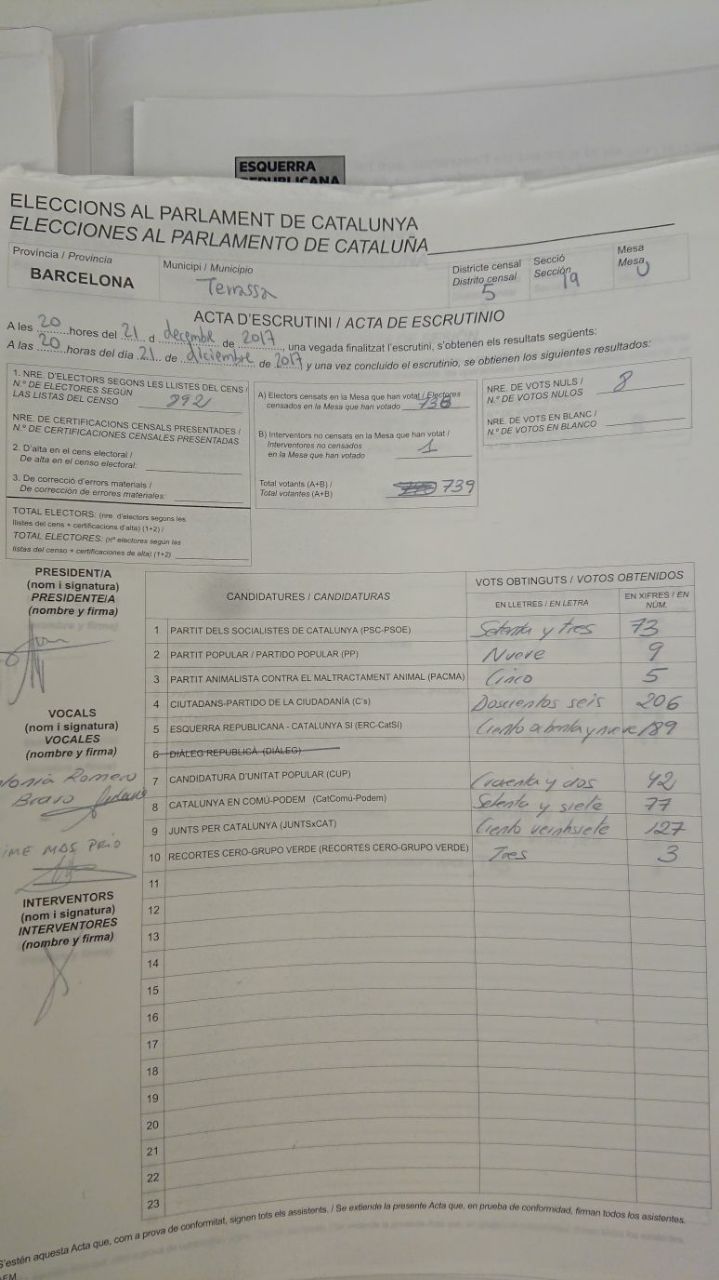 ESQUERRA
REPUBLICANA
ELECCIONS AL PARLAMENT DE CATALUNYA
ELECCIONES AL PARLAMENTO DE CATALUÑA
Provincia / Provincia
BARCELONA
Municipi / Municipio
Terrassa
Districte censal
Distrito censal
5
Secció
Sección
19
Mesa
Mesa
U
ACTA D'ESCRUTINI / ACTA DE ESCRUTINIO
A les 20 hores del 21 d decembre de 2017, una vegada finalitzat l'escrutini, s'obtenen els resultats següents:
A las 20 horas del día 21 de diciembre de 2017 y una vez concluido el escrutinio, se obtienen los siguientes resultados:
1. NRE. D'ELECTORS SEGONS LES LLISTES DEL CENS /
N.º DE ELECTORES SEGÚN
LAS LISTAS DEL CENSO 892
NRE. DE CERTIFICACIONS CENSALS PRESENTADES /
N.º DE CERTIFICACIONES CENSALES PRESENTADAS
2. D'alta en el cens electoral /
De alta en el censo electoral:
3. De correcció d'errors materials /
De corrección de errores materiales:
TOTAL ELECTORS: (nre. d'electors segons les
llistes del cens + certificacions d'alta) (1+2) /
TOTAL ELECTORES: (nº electores según las
listas del censo + certificaciones de alta) (1+2)
A) Electors censats en la Mesa que han votat / Electores
censados en la Mesa que han votado 738
B) Interventors no censats en la Mesa que han votat /
Interventores no censados
en la Mesa que han votado 1
Total votants (A+B) /
Total votantes (A+B) 739
NRE. DE VOTS NULS /
N.º DE VOTOS NULOS 8
NRE. DE VOTS EN BLANC /
N.º DE VOTOS EN BLANCO
PRESIDENT/A
(nom i signatura)
PRESIDENTE/A
(nombre y firma)
VOCALS
(nom i signatura)
VOCALES
(nombre y firma)
Romero
Bravo
MAS
INTERVENTORS
(nom i signatura)
INTERVENTORES
(nombre y firma)
CANDIDATURES / CANDIDATURAS
VOTS OBTINGUTS / VOTOS OBTENIDOS
EN LLETRES / EN LETRA
EN XIFRES / EN NÚM.
1 PARTIT DELS SOCIALISTES DE CATALUNYA (PSC-PSOE) Setenta y tres 73
2 PARTIT POPULAR / PARTIDO POPULAR (PP) Nueve 9
3 PARTIT ANIMALISTA CONTRA EL MALTRACTAMENT ANIMAL (PACMA) Cinco 5
4 CIUTADANS-PARTIDO DE LA CIUDADANÍA (C's) Doscientos seis 206
5 ESQUERRA REPUBLICANA - CATALUNYA SÍ (ERC-CatSí) Ciento ochenta y nueve 189
6 DIÀLEG REPUBLICÀ (DIÀLEG)
7 CANDIDATURA D'UNITAT POPULAR (CUP) Cuarenta y dos 42
8 CATALUNYA EN COMÚ-PODEM (CatComú-Podem) Setenta y siete 77
9 JUNTS PER CATALUNYA (JUNTSxCAT) Ciento veintisiete 127
10 RECORTES CERO-GRUPO VERDE (RECORTES CERO-GRUPO VERDE) Tres 3
11
12
13
14
15
16
17
18
19
20
21
22
23
S'estén aquesta Acta que, com a prova de conformitat, signen tots els assistents. / Se extiende la presente Acta que, en prueba de conformidad, firman todos los asistentes.